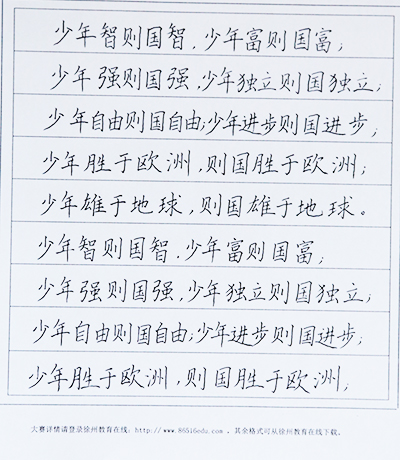 少年智则国智，少年富则国富；
少年强则国强，少年独立则国独立；
少年自由则国自由；少年进步则国进步；
少年胜于欧洲，则国胜于欧洲；
少年雄于地球，则国雄于地球。
少年智则国智，少年富则国富；
少年强则国强，少年独立则国独立；
少年自由则国自由；少年进步则国进步；
少年胜于欧洲，则国胜于欧洲；
大赛详情请登录徐州教育在线：http://www.86516edu.com ，其余格式可从徐州教育在线下载。